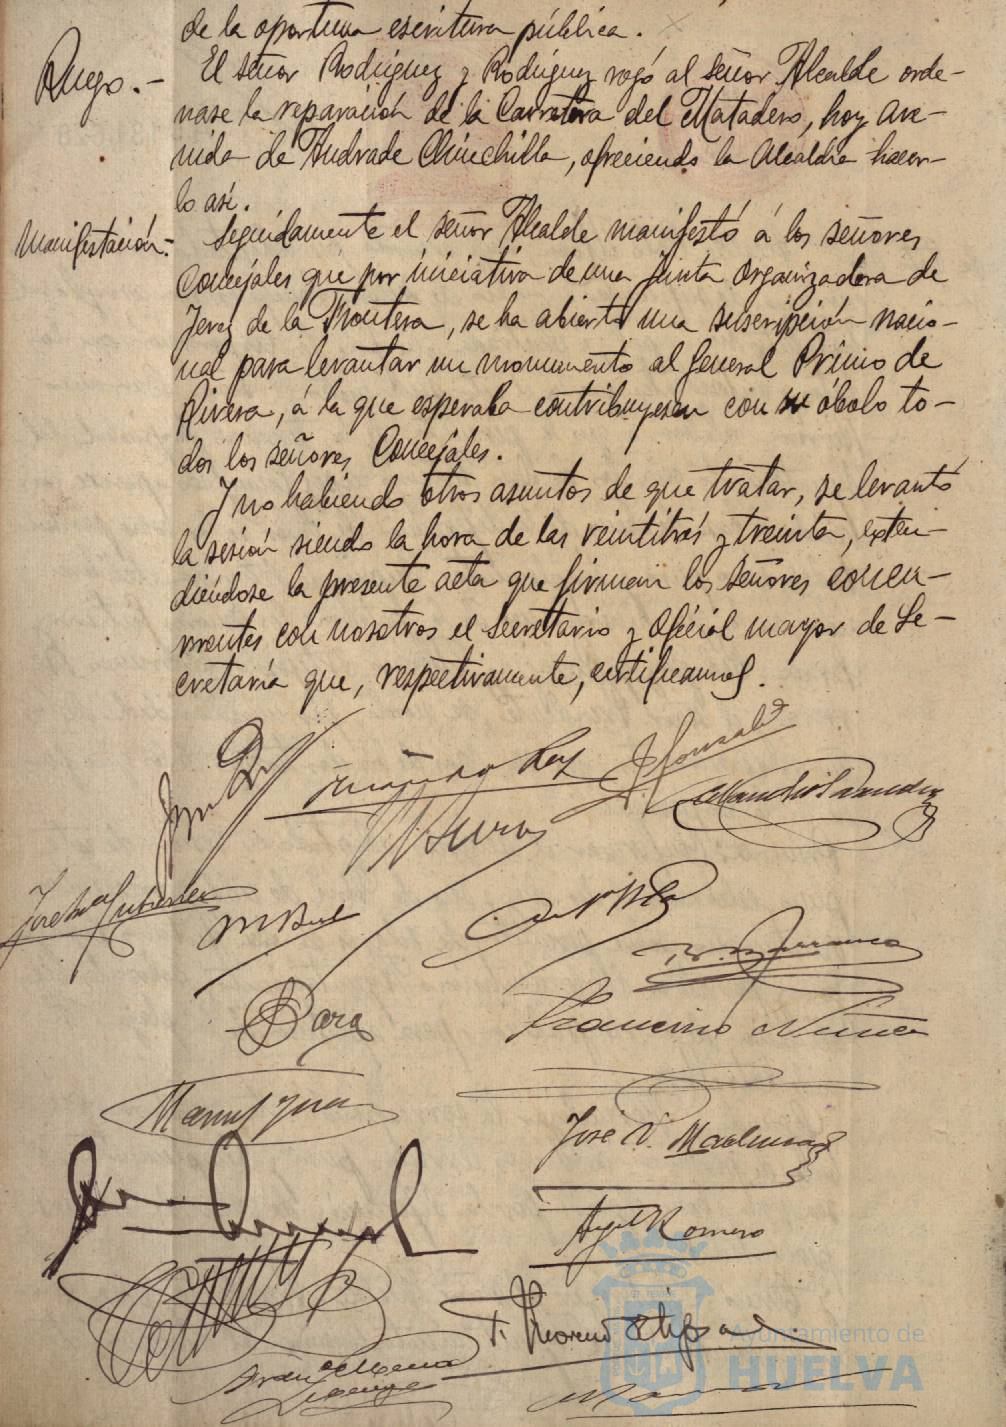 de la oportuna escritura pública.
Ruego.-
El señor Rodríguez y Rodríguez rogó al señor Alcalde orde-
nase la reparación de la Carretera del Matadero, hoy Ave-
nida de Andrade Chinchilla, ofreciendo la Alcaldía hacer-
lo así.
Manifestación.-
Seguidamente el señor Alcalde manifestó á los señores
Concejales que por iniciativa de una Junta organizadora de
Jerez de la Frontera, se ha abierto una suscripción nacio-
nal para levantar un monumento al General Primo de
Rivera, á la que esperaba contribuyesen con su óbolo to-
dos los señores Concejales.
Y no habiendo otros asuntos de que tratar, se levantó
la sesión siendo la hora de las veintitrés y treinta, exten-
diéndose la presente acta que firman los señores concu-
rrentes con nosotros el Secretario y Oficial mayor de Se-
cretaría que, respectivamente, certificamos.
José Gutiérrez
Francisco Núñez
Manuel
José
Romero
F. Moreno
Ayuntamiento de
HUELVA